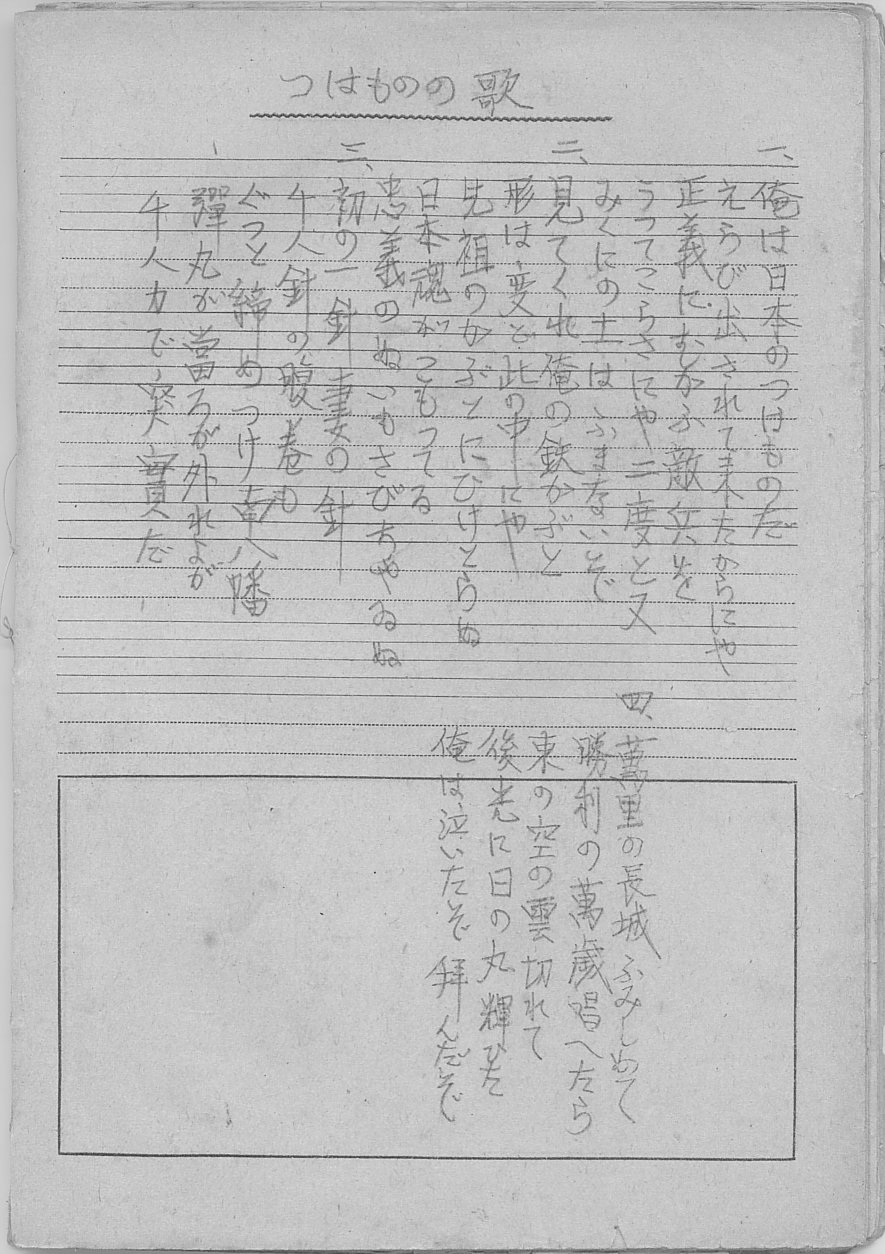 つはものの歌
一、俺は日本のつはものだ
えらび出されて来たからにや
正義にむかふ敵兵を
うつてこらさにや二度と又
みくにの土はふまないぞ
二、見てくれ俺の鉄かぶと
形は変と此の中にや
先祖のかぶとにひけとらぬ
日本魂がこもつてる
忠義のぬいもさびちやゐぬ
三、初の一針妻の針
千人針の腹巻も
ぐつと締めつけ南八幡
彈丸が當ろが外れよが
千人力で突貫だ
四、萬里の長城ふみしめて
勝利の萬歳唱へたら
東の空の雲切れて
後光に日の丸輝いた
俺は泣いたぞ拜んだぞ